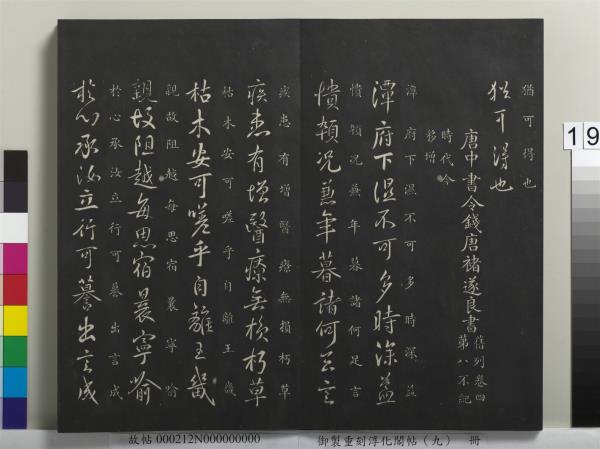 猶可得也
猶可得也
唐中書令錢唐褚遂良書
舊列卷四
第八不紀
時代今
移增
潭府下濕不可多時深益
潭府下濕不可多時深益
憒頓況兼年暮諸何足言
憒頓況兼年暮諸何足言
疾患有增醫療無損朽草
疾患有增醫療無損朽草
枯木安可嗟乎自離王畿
枯木安可嗟乎自離王畿
親故阻越每思宿晨寧喻
親故阻越每思宿晨寧喻
於心承汝立行可慕出言成
於心承汝立行可慕出言成
19
故帖 000212N000000000
御製重刻淳化閣帖（九） 冊